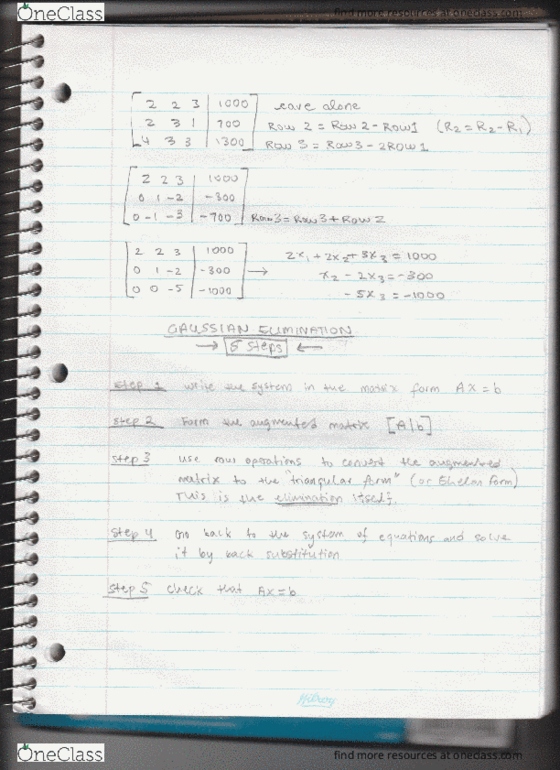 OneClass
find more resources at oneclass.com
2 2 3 | 1000 leave alone
2 3 1 | 700 Row 2 = Row 2 - Row 1 (R2 = R2 - R1)
4 3 3 | 1300 Row 3 = Row 3 - 2 Row 1
2 2 3 | 1000
0 1 -2 | -300
0 -1 -3 | -700 Row 3 = Row 3 + Row 2
2 2 3 | 1000 2x1 + 2x2 + 3x3 = 1000
0 1 -2 | -300 → x2 - 2x3 = -300
0 0 -5 | -1000 -5x3 = -1000
GAUSSIAN ELIMINATION
→ 5 steps ←
Step 1 write the system in the matrix form Ax = b
Step 2 Form the augmented matrix [A|b]
Step 3 use row operations to convert the augmented
matrix to the "triangular form" (or Ehelon Form)
This is the elimination itself.
Step 4 Go back to the system of equations and solve
it by back substitution
Step 5 check that Ax = b
Hilroy
OneClass
find more resources at oneclass.com